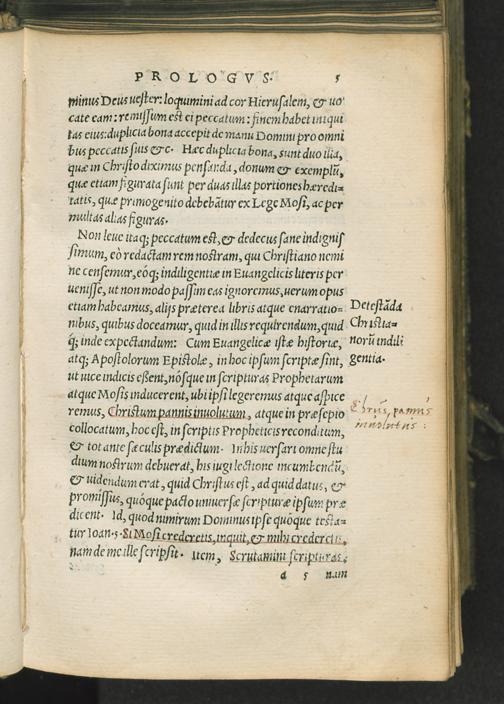 PROLOGVS. 5
minus Deus uester: loquimini ad cor Hierusalem, & uo
cate eam: remissum est ei peccatum: finem habet iniqui
tas eius: duplicia bona accepit de manu Domini pro omni
bus peccatis suis &c. Hæc duplicia bona, sunt duo illa,
quæ in Christo diximus pensanda, donum & exemplũ,
quæ etiam figurata sunt per duas illas portiones hæredi=
tatis, quæ primogenito debebãtur ex Lege Mosi, ac per
multas alias figuras.
Non leue itaq; peccatum est, & dedecus sane indignis
simum, eò redactam rem nostram, qui Christiano nomi
ne censemur, eóq; indiligentiæ in Euangelicis literis per
uenisse, ut non modo passim eas ignoremus, uerum opus
etiam habeamus, alijs præterea libris atque enarratio=
nibus, quibus doceamur, quid in illis requirendum, quid
q; inde expectandum: Cum Euangelicæ istæ historiæ,
atq; Apostolorum Epistolæ, in hoc ipsum scriptæ sint,
ut uice indicis essent, nósque in scripturas Prophetarum
atque Mosis inducerent, ubi ipsi legeremus atque aspice
remus, Christum pannis inuolutum, atque in præsepio
collocatum, hoc est, in scriptis Propheticis reconditum,
& tot ante sæculis prædictum. In his uersari omne stu
dium nostrum debuerat, his iugi lectione incumbendũ,
& uidendum erat, quid Christus est, ad quid datus, &
promissus, quóque pacto uniuersæ scripturæ ipsum præ
dicent. Id, quod nimirum Dominus ipse quóque testa=
tur Ioan. 5. Si Mosi crederetis, inquit, & mihi crederetis,
nam de me ille scripsit. Item, Scrutamini scripturas,
a 5 nam
Detestãda
Christia=
norũ indili
gentia.
Chrūs, pannis
inuolutus :